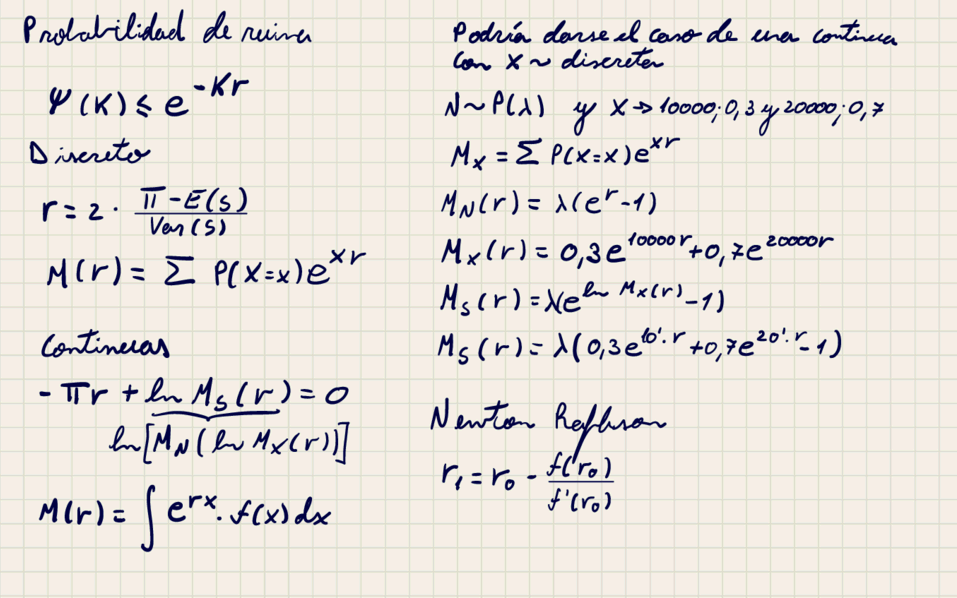 Probabilidad de ruina
Ψ(K) ≤ e^{-Kr}
Discreto
r = 2 · \frac{π - E(S)}{Var(S)}
M(r) = Σ P(X=x)e^{xr}
Continuas
- πr + ln M_S(r) = 0
ln[M_N(ln M_X(r))]
M(r) = ∫ e^{rx} · f(x) dx
Podría darse el caso de una continua
con X ~ discreta
N ~ P(λ) y X → 10000; 0,3 y 20000; 0,7
M_X = Σ P(X=x)e^{xr}
M_N(r) = λ(e^r - 1)
M_X(r) = 0,3e^{10000r} + 0,7e^{20000r}
M_S(r) = λ(e^{ln M_X(r)} - 1)
M_S(r) = λ(0,3e^{10'·r} + 0,7e^{20'·r} - 1)
Newton Raphson
r_1 = r_0 - \frac{f(r_0)}{f'(r_0)}